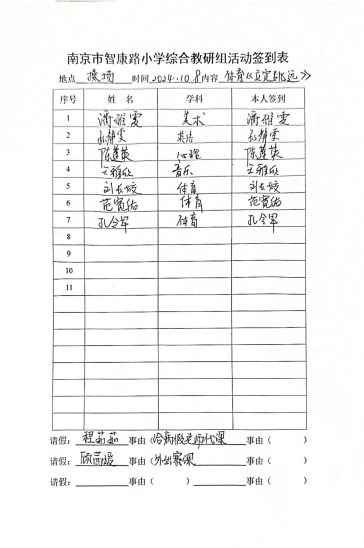 南京市智康路小学综合教研组活动签到表
地点 操场 时间 2024.10.8 内容 体育《立定跳远》
序号 姓 名 学科 本人签到
1 美术
2 孙静雯 英语 孙静雯
3 陈莲英 心理 陈莲英
4 王雅欣 音乐 王雅欣
5 刘长姣 体育 刘长姣
6 范宽佑 体育 范宽佑
7 孔令军 体育 孔令军
8
9
10
11
请假: 程茹茹 事由( 给病假老师代课 事由( )
请假: 顾茜媛 事由( 外出赛课 事由( )
请假: 事由( ) 事由( )